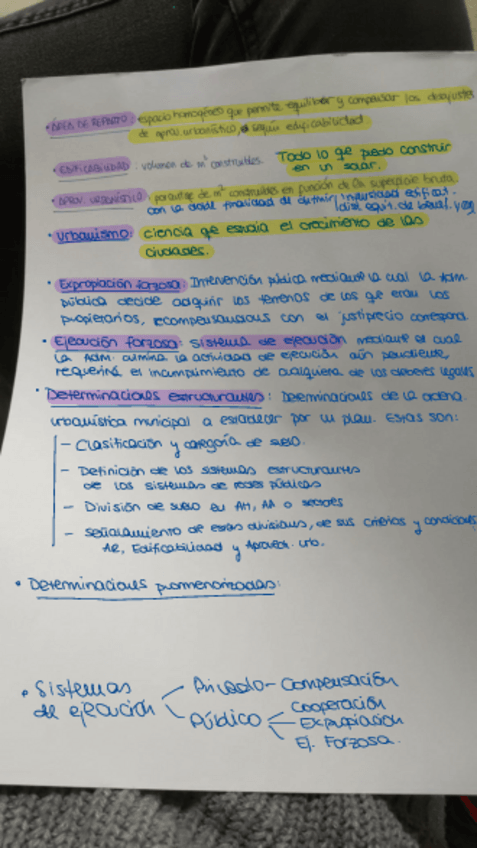 • ÁREA DE REPARTO: espacio homogéneo que permite equilibrar y compensar los desajustes
de aprov. urbanístico, según edificabilidad
• EDIFICABILIDAD: volumen de m² construibles. Todo lo que puedo construir
en un solar.
• APROV. URBANÍSTICO: porcentaje de m² construibles en función de la superficie bruta.
con la doble finalidad de definir intensidad edificat.
dist. equit. de benef. y
• Urbanismo: ciencia que estudia el crecimiento de las
ciudades.
• Expropiación forzosa: Intervención pública mediante la cual la Adm.
pública decide adquirir los terrenos de los que eran los
propietarios, recompensandolos con el justiprecio correspond.
• Ejecución forzosa: sistema de ejecución mediante el cual
la Adm. culmina la actividad de ejecución aún pendiente,
requerirá el incumplimiento de cualquiera de los deberes legales
• Determinaciones estructurantes: Determinaciones de la ordena.
urbanística municipal a establecer por un plan. Estas son:
— Clasificación y categoría de suelo.
— Definición de los sistemas estructurantes
de los sistemas de redes públicas
— División de suelo en AH, AA o sectores
— señalamiento de estas divisiones, de sus criterios y condiciones
AR, Edificabilidad y Aprovech. urb.
• Determinaciones promenorizadas:
• Sistemas
de ejecución
Privado - Compensación
Público
Cooperación
Expropiación
Ej. Forzosa.